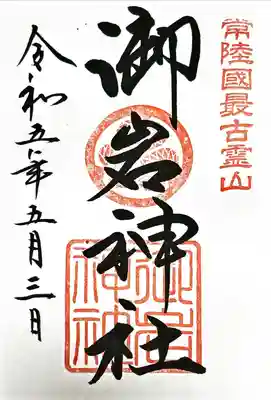 常陸國最古霊山
御岩神社
令和五年五月三日